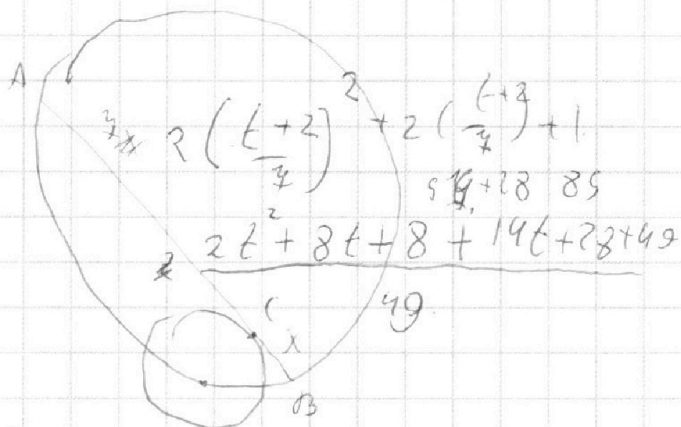 A
2 ( (t+2)/7 )² + 2 ( (t+2)/7 ) + 1
+28 85
2t² + 8t + 8 + 14t + 28 + 49
49
C
x
B